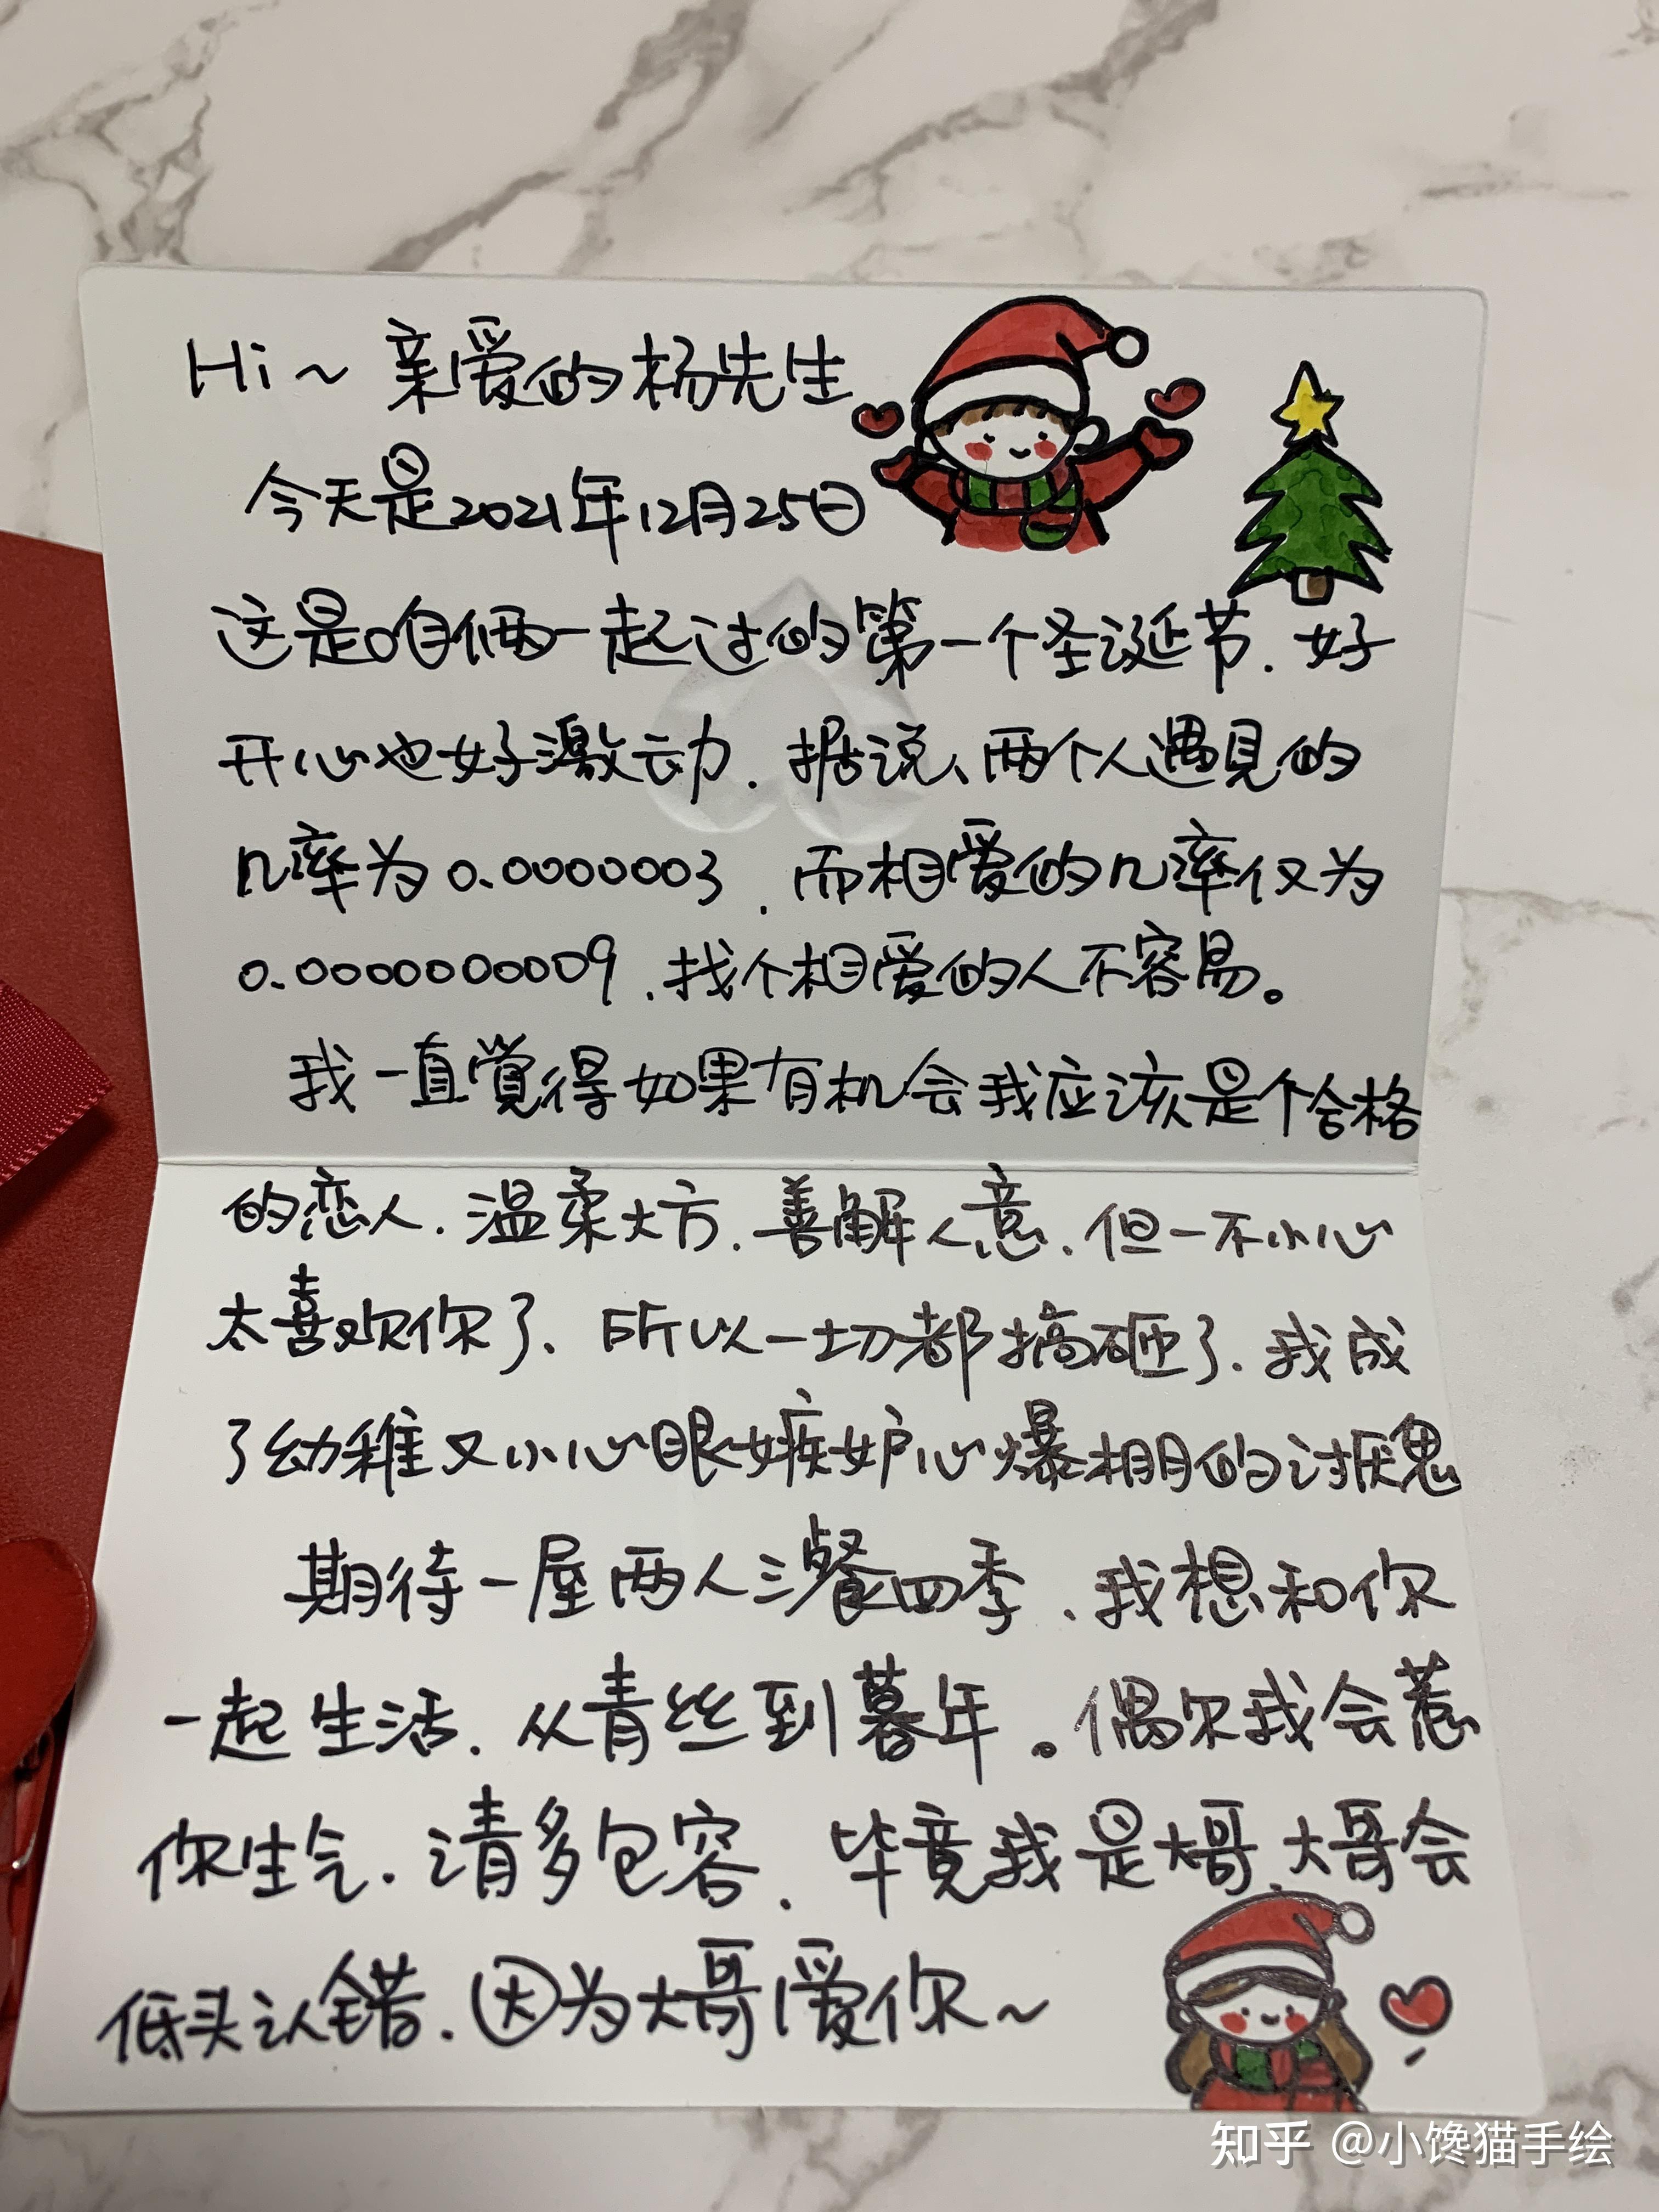 Hi～亲爱的杨先生
今天是2021年12月25日
这是咱俩一起过的第一个圣诞节.好
开心也好激动.据说、两个人遇见的
几率为0.0000003.而相爱的几率仅为
0.0000000009.找个相爱的人不容易。
我一直觉得如果有机会我应该是个合格
的恋人.温柔大方.善解人意.但一不小心
太喜欢你了.所以一切都搞砸了.我成
了幼稚又小心眼嫉妒心爆棚的讨厌鬼
期待一屋两人三餐四季.我想和你
一起生活.从青丝到暮年。偶尔我会惹
你生气.请多包容.毕竟我是大哥.大哥会
低头认错.因为大哥爱你～
知乎 @小馋猫手绘